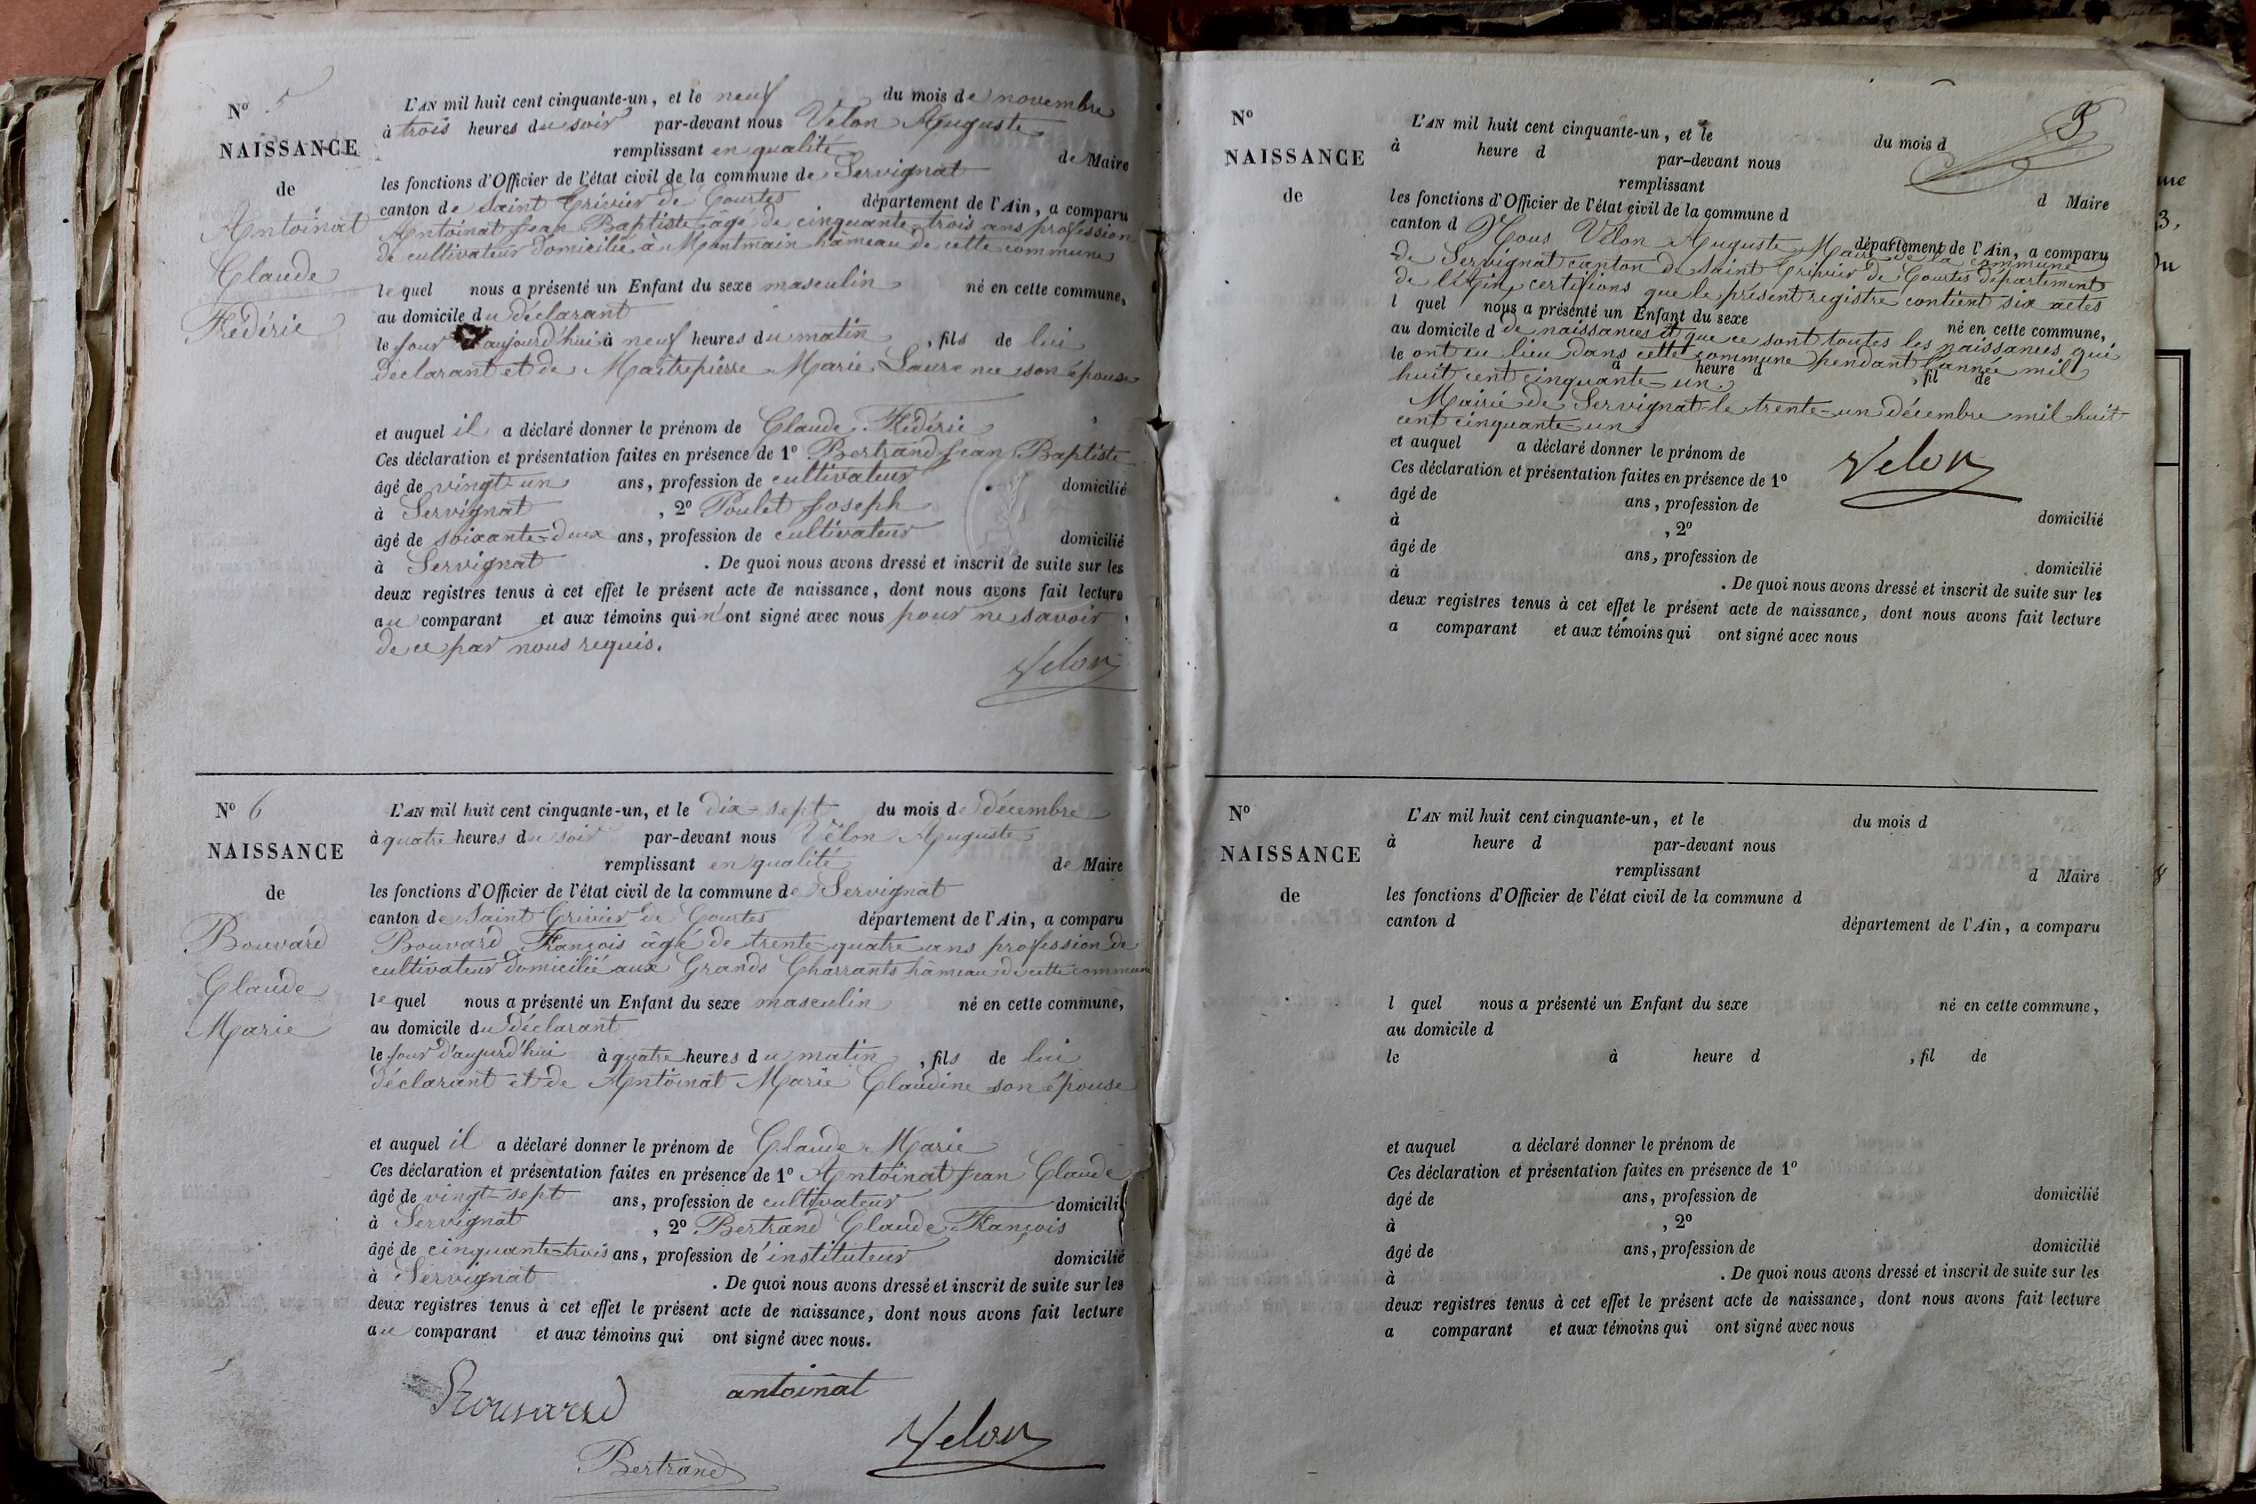 Nº 5
NAISSANCE
de
Antoinat
Claude
Frédéric
L'AN mil huit cent cinquante-un, et le neuf du mois de novembre
à trois heures du soir par-devant nous Velon Auguste
remplissant en qualité de Maire
les fonctions d'Officier de l'état civil de la commune de Servignat
canton de Saint Trivier de Courtes département de l'Ain, a comparu
Antoinat Jean Baptiste âgé de cinquante-trois ans profession
de cultivateur domicilié à Montmain hameau de cette commune
lequel nous a présenté un Enfant du sexe masculin né en cette commune,
au domicile du déclarant
le jour d'aujourd'hui à neuf heures du matin, fils de lui
déclarant et de Maitrepierre Marie Laurence son épouse
et auquel il a déclaré donner le prénom de Claude Frédéric
Ces déclaration et présentation faites en présence de 1º Bertrand Jean Baptiste
âgé de vingt-un ans, profession de cultivateur domicilié
à Servignat, 2º Poulet Joseph
âgé de soixante-deux ans, profession de cultivateur domicilié
à Servignat. De quoi nous avons dressé et inscrit de suite sur les
deux registres tenus à cet effet le présent acte de naissance, dont nous avons fait lecture
au comparant et aux témoins qui n'ont signé avec nous pour ne savoir
de ce par nous requis.
Velon
Nº 6
NAISSANCE
de
Bouvard
Claude
Marie
L'AN mil huit cent cinquante-un, et le dix-sept du mois de décembre
à quatre heures du soir par-devant nous Velon Auguste
remplissant en qualité de Maire
les fonctions d'Officier de l'état civil de la commune de Servignat
canton de Saint Trivier de Courtes département de l'Ain, a comparu
Bouvard François âgé de trente-quatre ans profession de
cultivateur domicilié aux Grands Charrants hameau de cette commune
lequel nous a présenté un Enfant du sexe masculin né en cette commune,
au domicile du déclarant
le jour d'aujourd'hui à quatre heures du matin, fils de lui
déclarant et de Antoinat Marie Claudine son épouse
et auquel il a déclaré donner le prénom de Claude Marie
Ces déclaration et présentation faites en présence de 1º Antoinat Jean Claude
âgé de vingt-sept ans, profession de cultivateur domicilié
à Servignat, 2º Bertrand Claude François
âgé de cinquante-trois ans, profession de instituteur domicilié
à Servignat. De quoi nous avons dressé et inscrit de suite sur les
deux registres tenus à cet effet le présent acte de naissance, dont nous avons fait lecture
au comparant et aux témoins qui ont signé avec nous.
Bouvard antoinat
Velon
Bertrand
Nº
NAISSANCE
de
L'AN mil huit cent cinquante-un, et le du mois d
à heure d par-devant nous
remplissant d Maire
les fonctions d'Officier de l'état civil de la commune d
canton d département de l'Ain, a comparu
Nous Velon Auguste Maire de la commune
de Servignat canton de Saint Trivier de Courtes département
de l'Ain, certifions que le présent registre contient six actes
l quel nous a présenté un Enfant du sexe né en cette commune,
de naissances et que ce sont toutes les naissances qui
au domicile d
ont eu lieu dans cette commune pendant l'année mil
le à heure d , fil de
huit cent cinquante-un.
Mairie de Servignat le trente-un décembre mil huit
cent cinquante un
et auquel a déclaré donner le prénom de
Velon
Ces déclaration et présentation faites en présence de 1º
âgé de ans, profession de domicilié
à , 2º
âgé de ans, profession de domicilié
à . De quoi nous avons dressé et inscrit de suite sur les
deux registres tenus à cet effet le présent acte de naissance, dont nous avons fait lecture
a comparant et aux témoins qui ont signé avec nous
Nº
NAISSANCE
de
L'AN mil huit cent cinquante-un, et le du mois d
à heure d par-devant nous
remplissant d Maire
les fonctions d'Officier de l'état civil de la commune d
canton d département de l'Ain, a comparu
l quel nous a présenté un Enfant du sexe né en cette commune,
au domicile d
le à heure d , fil de
et auquel a déclaré donner le prénom de
Ces déclaration et présentation faites en présence de 1º
âgé de ans, profession de domicilié
à , 2º
âgé de ans, profession de domicilié
à . De quoi nous avons dressé et inscrit de suite sur les
deux registres tenus à cet effet le présent acte de naissance, dont nous avons fait lecture
a comparant et aux témoins qui ont signé avec nous